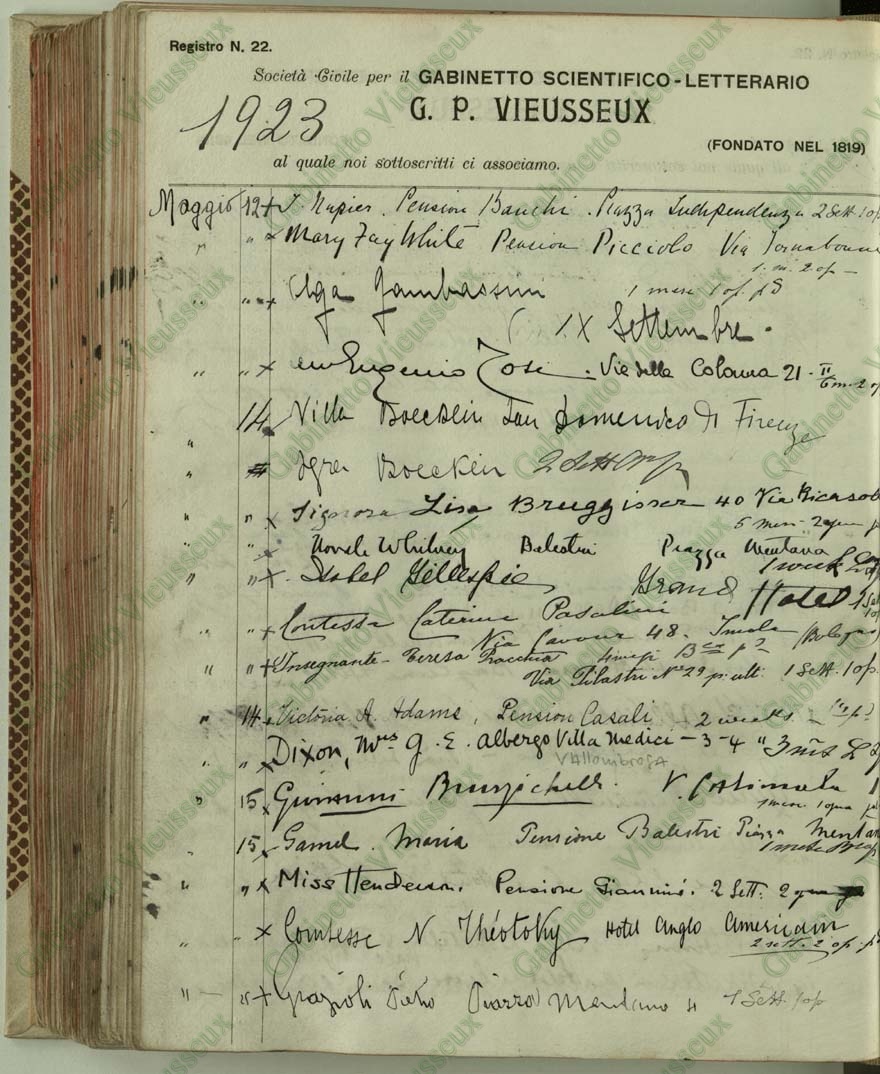 Registro N. 22.
Società Civile per il GABINETTO SCIENTIFICO-LETTERARIO
G. P. VIEUSSEUX
1923
(FONDATO NEL 1819)
al quale noi sottoscritti ci associamo.
Maggio 12 + J. Napier. Pension Banchi. Piazza Indipendenza 2 Sett 1 op
" " x Mary Fay White Pension Picciolo Via Tornabuoni
1. m. 2 op –
" " x Olga Gambassini 1 mese 1 op. p S
1 X Settembre.
" " x Eugenio Tosi. Via della Colonna 21 - II
6 m. 2 o
14 Villa Boecklin San Domenico di Firenze
" Sgra Boecklin 2 Sett
" " x Signora Lisa Bruggisser 40 Via Ricasoli
5 mesi - 2
" x Whitney Balestri Piazza Mentana
1 week
" " x. Isabel Gillespie Grand Hotel
" " + Contessa Caterina Pasolini
Via Cavour 48. Imola (Bologna)
" " + Insegnante - Teresa
Via Pilastri No 29 p. ult. 1 Sett. 1 op.
" 14 x Victoria A. Adams, Pension Casali – 2 weeks
" " x Dixon, Mrs G. E. Albergo Villa Medici – 3-4 "
VALLOMBROSA
" 15 x Giovanni V.
1 mese. 1
15 x Gamel. Maria Pensione Balestri Piazza Mentana
1 mese
" " x Miss Henderson. Pensione Giannini. 2 Sett. 2
" " x Comtesse N. Théotoky Hotel Anglo American
2 sett. 2 op.
" – + Grazioli Piazza Mentana 4 1 Sett. 1 op